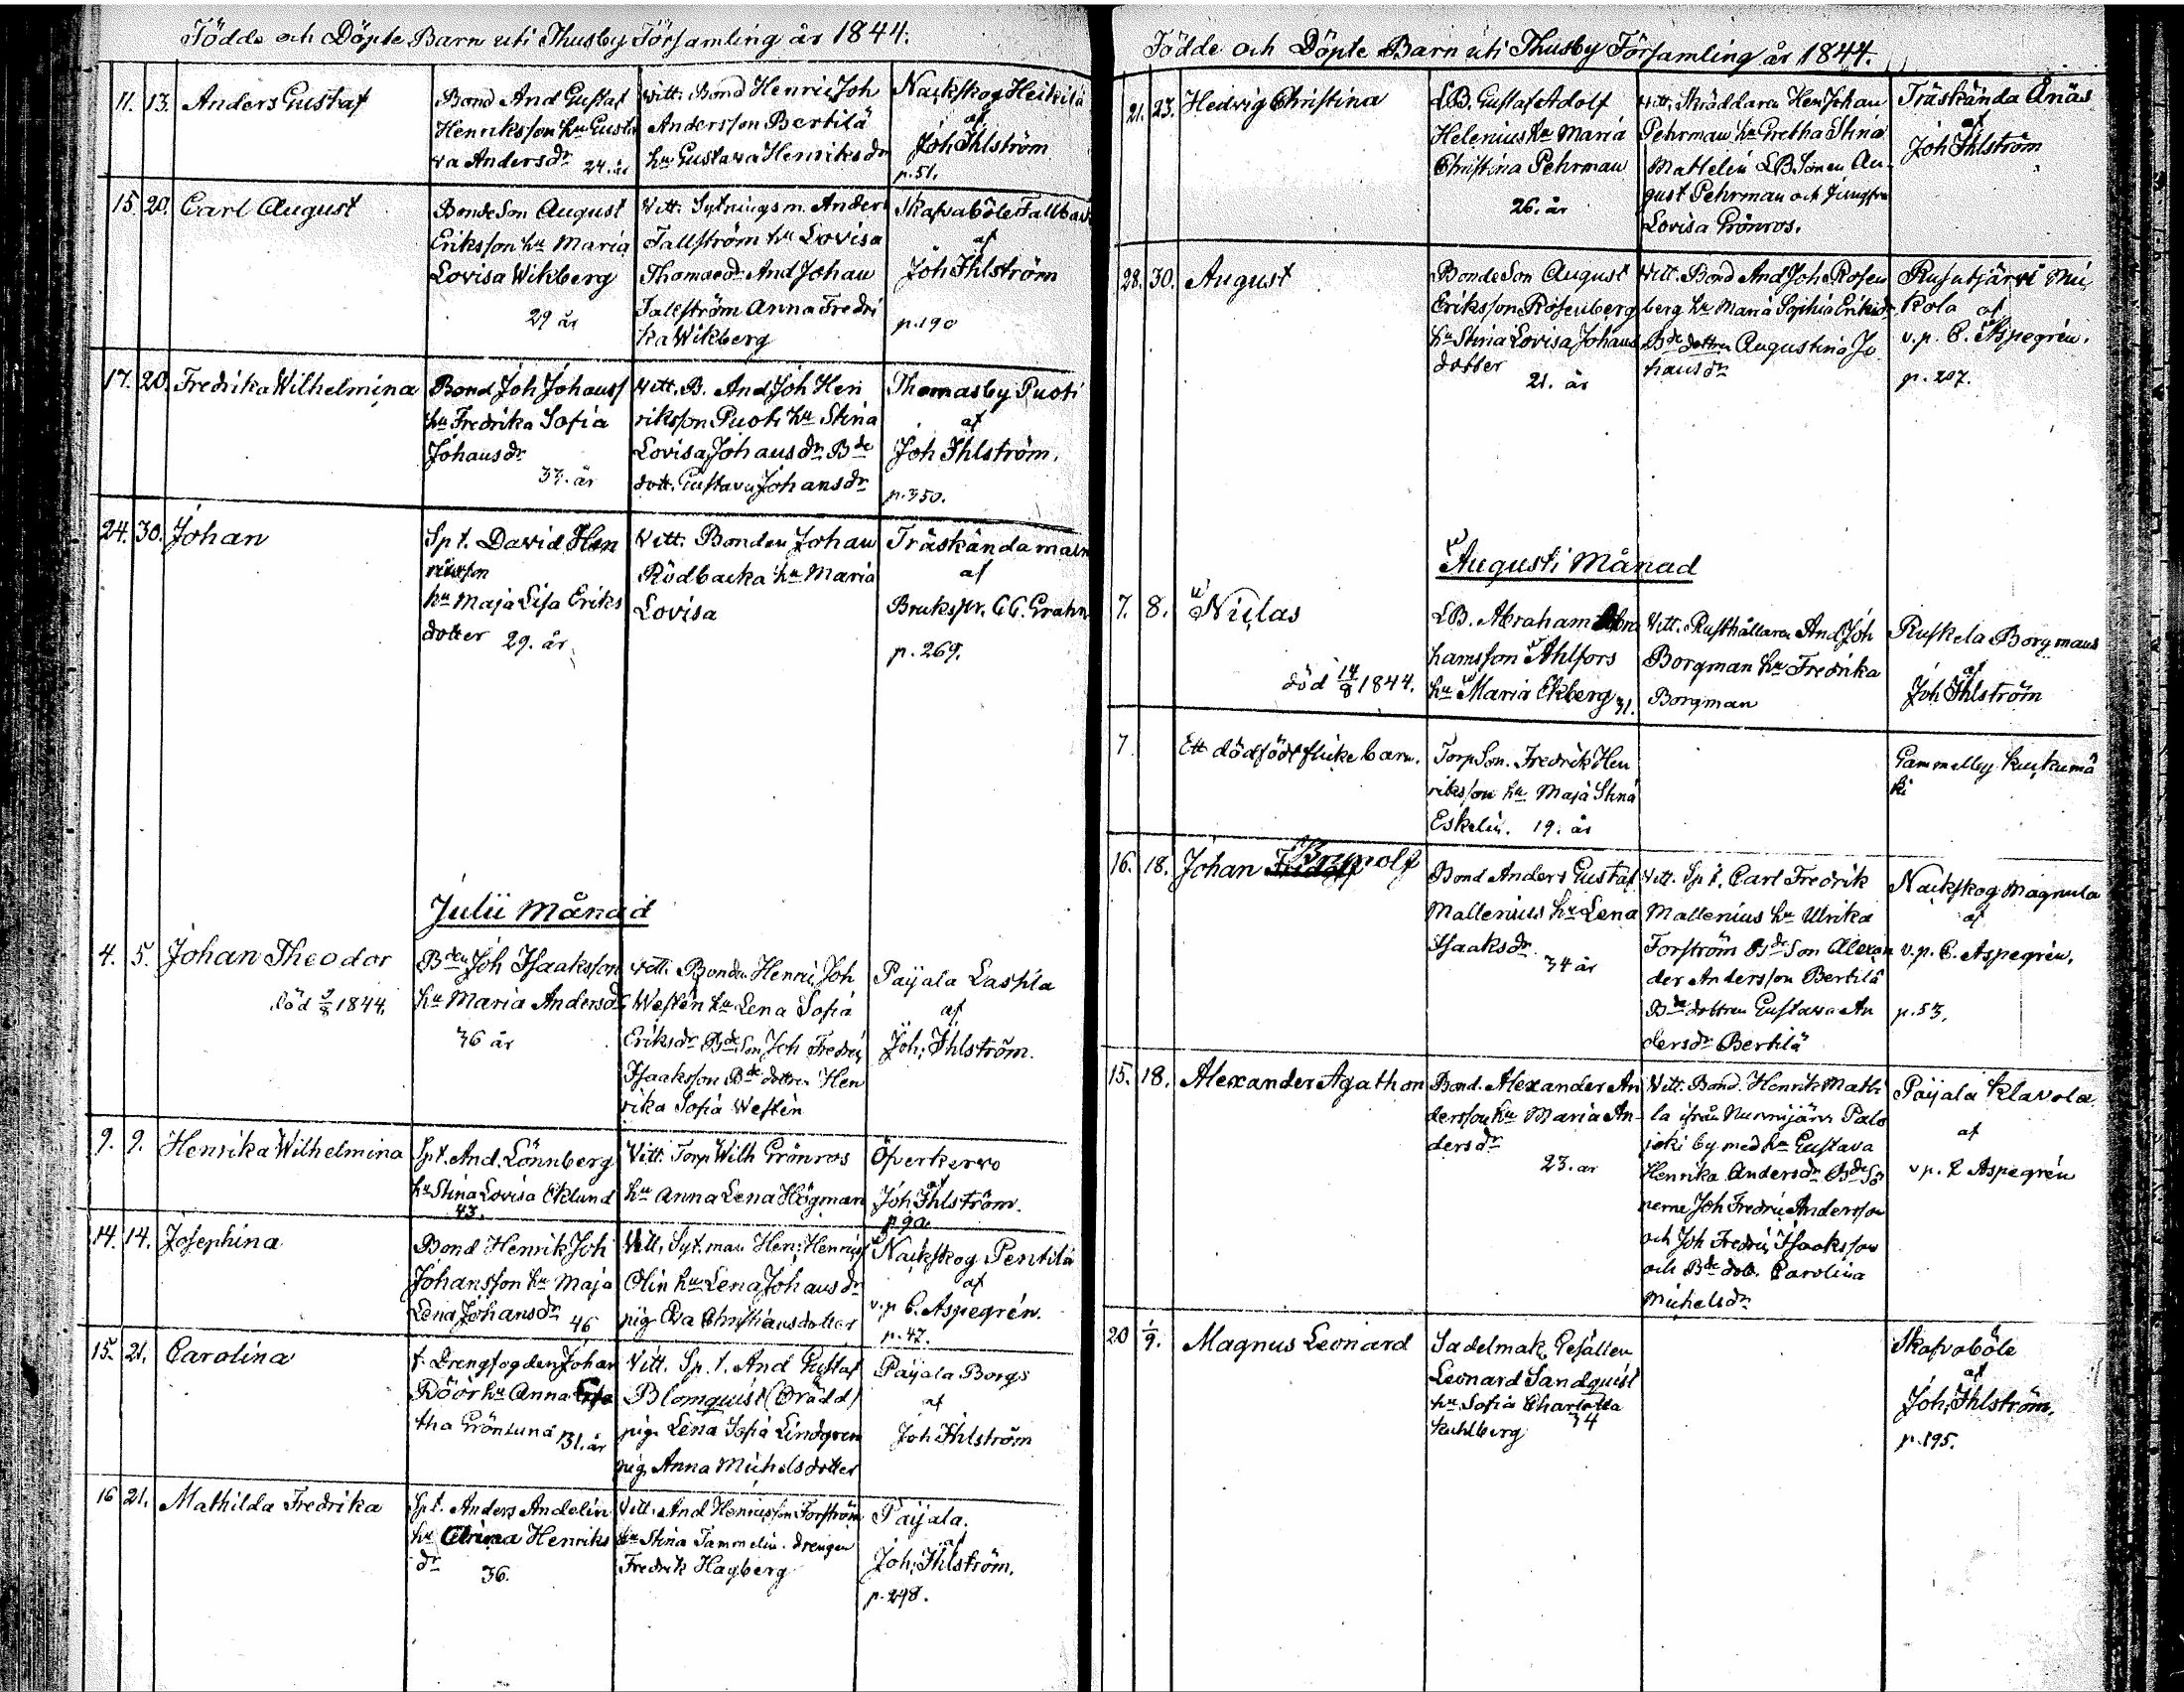 Födde och Döpte Barn uti Thusby Församling år 1844.
11. 13. Anders Gustaf
Bond And Gustaf
Henriksson hu Gusta
va Andersdr 24. år
Vitt. Bond Henric Joh
Andersson Bertilä
hu Gustava Henriksdr
Nackskog Heikilä
af
Joh Ihlström
p. 51.
15. 20. Carl August
BondeSon August
Eriksson hu Maria
Lovisa Wikberg
29 år
Vitt. Sytningsm. Anders
Tallström hu Lovisa
Thomasdr And Johan
Tallström Anna Fredri
ka Wikberg
Skafvaböle Tallbac
af
Joh Ihlström
p. 190
17. 20. Fredrika Wilhelmina
Bond Joh Johanss
hu Fredrika Sofia
Johansdr
33. år
Vitt. B. And Joh Hen
riksson Puoti hu Stina
Lovisa Johansdr Bde
dott. Gustava Johansdr
Thomasby Puoti
af
Joh Ihlström.
p. 350.
24. 30. Johan
Spt. David Hen
riksson
hu Maja Lisa Eriks
dotter 29. år
Vitt. Bonden Johan
Rödbacka hu Maria
Lovisa
Träskända
af
Brukspr. C C. Grahn
p. 269.
Julii Månad
4. 5. Johan Theodor
död 9/8 1844.
Bden Joh Isaaksson
hu Maria Andersdr
36 år
Vitt. Bonden Henric Joh
Westen hu Lena Sofia
Eriksdr Bde Son Joh Fredric
Isaaksson Bde dottren Hen
rika Sofia Westen
Paijala Laskla
af
Joh: Ihlström.
9. 9. Henrika Wilhelmina
Spt. And. Lönnberg
hu Stina Lovisa Eklund
43.
Vitt. Torp Wilh Grönroos
hu Anna Lena Högman
Öfverkervo
af
Joh Ihlström.
p 90.
14. 14. Josephina
Bond Henrik Joh
Johansson hu Maja
Lena Johansdr 46
Vitt. Syt. man Hen: Henrics
Olin hu Lena Johansdr
pig Eva Christiansdotter
Nackskog Pentilä
af
v. p C. Aspegrén.
p. 47.
15. 21. Carolina
f. Drengfogden Johan
Röör hu Anna
tha Grönlund 31. år
Vitt. Sp. t. And Gustaf
Blomquist (Brädd)
pig. Lena Sofia Lindgren
pig Anna Michelsdotter
Paijala Borgs
af
Joh Ihlström
16 21. Mathilda Fredrika
Spt. Anders Andelin
hu Henriks
dr 36.
Vitt. And Henricsson Forsström
hu Stina Tammelin. drengen
Fredrik Hagberg
Paijala.
af
Joh: Ihlström.
p. 298.
Födde och Döpte Barn uti Thusby Församling år 1844.
21. 23. Hedvig Christina
LB. Gustaf Adolf
Helenius hu Maria
Christina Pehrman
26. år
Vitt. Skräddaren Hen Johan
Pehrman hu Gretha Stina
Mattelin LBSonen Au
gust Pehrman och Jungfru
Lovisa Grönros.
Träskända Ånäs
af
Joh Ihlström
28. 30. August
BondeSon August
Eriksson Rosenberg
hu Stina Lovisa Johans
dotter
21. år
Vitt. Bond And Joh Rosen
berg hu Maria Sophia Eriksdr
Bde dottren Augustina Jo
hansdr
Rusutjärvi Mic
kola af
v. p. C. Aspegrén.
p. 207.
Augusti Månad
7. 8. Niclas
död 14/8 1844.
LB. Abraham Abra
hamsson Ahlfors
hu Maria Ekberg 31.
Vitt. Rusthållaren And Joh
Borgman hu Fredrika
Borgman
Ruskela Borgmans
af
Joh Ihlström
7. Ett dödfödt flicke barn.
TorpSon. Fredrik Hen
riksson hu Maja Stina
Eskelin. 19. år
Gammelby Kuckumä
ki
16. 18. Johan Brynolf
Bond Anders Gustaf
Mallenius hu Lena
Isaaksdr
34 år
Vitt. Sp t. Carl Fredrik
Mallenius hu Ulrika
Forsström Bde Son Alexan
der Andersson Bertilä
Bde dottren Gustava An
dersdr Bertilä
Nackskog Magnula
af
v. p. C. Aspegrén.
p. 53.
15. 18. Alexander Agathon
Bond. Alexander An
dersson hu Maria An
dersdr
23. år
Vitt. Bond. Henrik Mathi
la ifrån Nurmijärvi Palo
joki by med hu Gustava
Henrika Andersdr Bde Sö
nerne Joh Fredric Andersson
och Joh Fredric Isaaksson
och Bde dott. Carolina
Michelsdr
Paijala Klavola
af
v p. C Aspegrén
20 1/9. Magnus Leonard
Sadelmak. Gesällen
Leonard Sandquist
hu Sofia Charlotta
Kuhlberg 34
Skafvaböle
af
Joh, Ihlström.
p. 195.